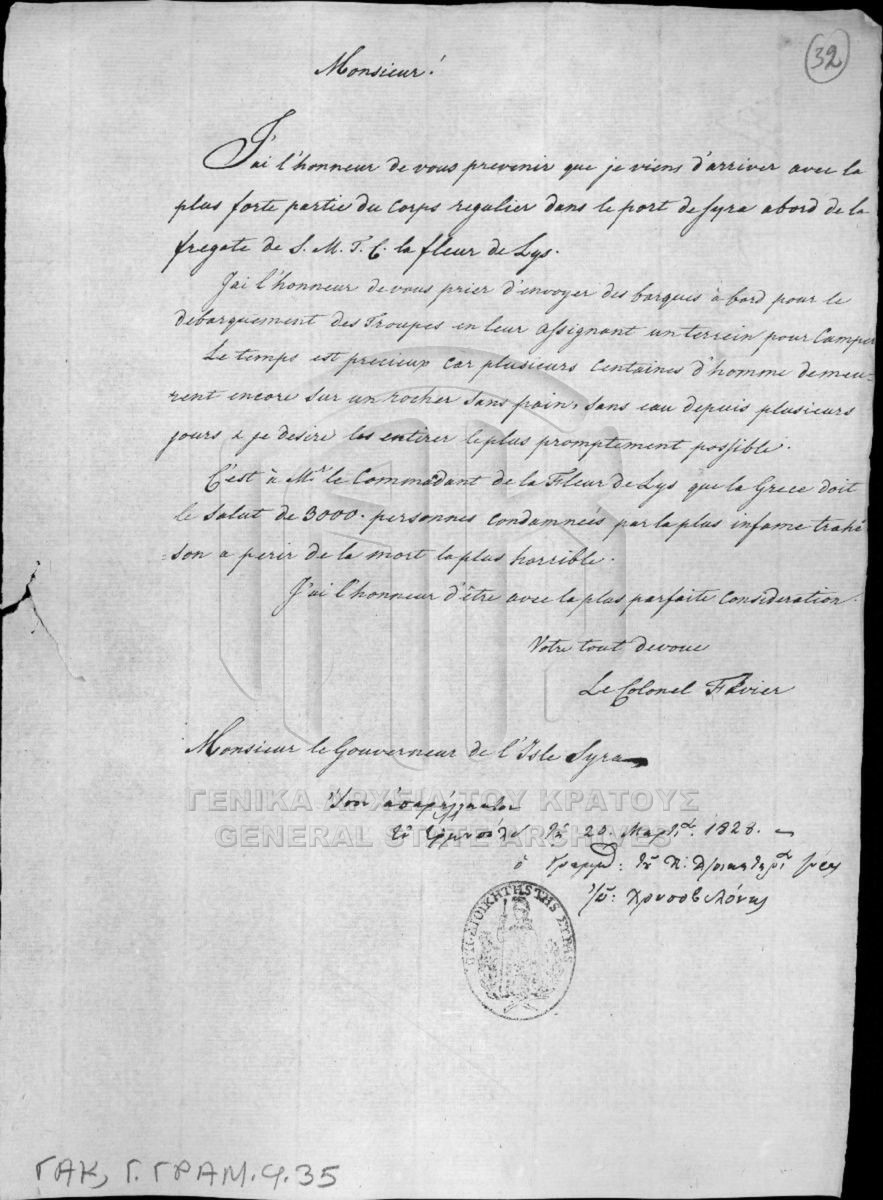 32
Monsieur!
J'ai l'honneur de vous prevenir que je viens d'arriver avec la
plus forte partie du Corps regulier dans le port de Syra abord de la
fregate de S. M. T. C. la fleur de Lys.
J'ai l'honneur de vous prier d'envoyer des barques à bord pour le
debarquement des Troupes en leur assignant un terrein pour Camper
Le temps est precieux car plusieurs Centaines d'homme demeu-
rent encore sur un rocher sans pain, sans eau depuis plusieurs
jours & je desire les entirer le plus promptement possible.
C'est à Mr. le Commadant de la Fleur de Lys que la Grece doit
le salut de 3000. personnes Condamnées par la plus infame trahi
=son a perir de la mort la plus horrible.
J'ai l'honneur d'être avec la plus parfaite Consideration.
Votre tout devoue
Le Colonel
Monsieur le Gouverneur de l'Isle Syra
ΓΕΝΙΚΑ ΑΡΧΕΙΑ ΤΟΥ ΚΡΑΤΟΥΣ
Ἴσον ἀπαράλλακτον
GENERAL STATE ARCHIVES
Ἑρμουπόλει τῇ Μαρτ. 1828.
ὁ Γραμμ:
ΤΗΣ ΣΥΡΑΣ
ΓΑΚ, Γ. ΓΡΑΜ. φ. 35